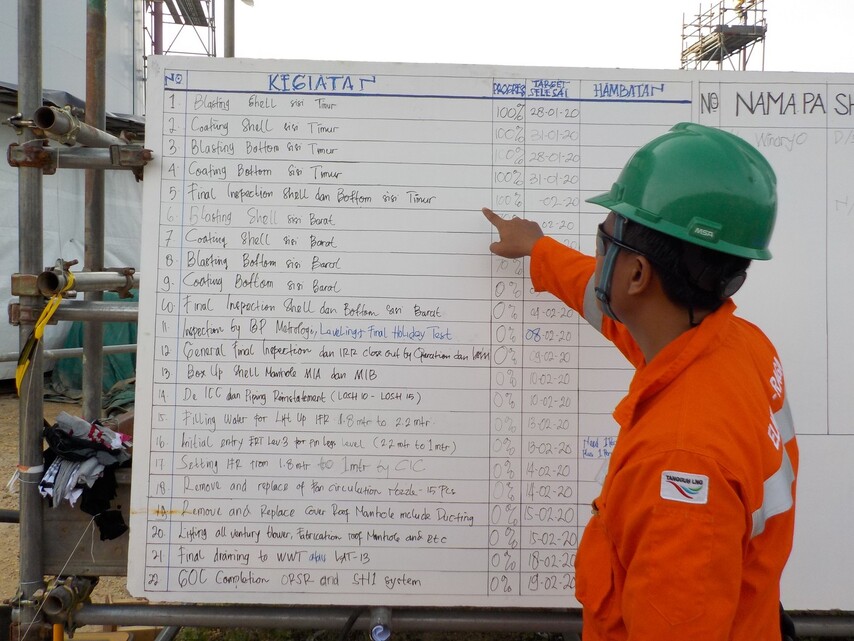 NO KEGIATAN PROGRES TARGET SELESAI HAMBATAN
1 Blasting Shell sisi Timur 100% 28-01-20
2 Coating Shell sisi Timur 100% 31-01-20
3 Blasting Bottom sisi Timur 100% 28-01-20
4 Coating Bottom sisi Timur 100% 31-01-20
5 Final Inspection Shell dan Bottom sisi Timur 100% -02-20
6. Blasting Shell sisi Barat 02-20
7 Coating Shell sisi Barat
8 Blasting Bottom sisi Barat
9. Coating Bottom sisi Barat 0%
10. Final Inspection Shell dan Bottom sisi Barat 0% -02-20
11. Inspection by BP Metrologi, Leveling, Final Holiday Test 0% 08-02-20
12 General Final Inspection dan IRR close out by Operation dan 0% 09-02-20
13 Box Up Shell Manhole M1A dan M1B 0% 10-02-20
14 De ICC dan Piping Reinstatement (LOSH 10 - LOSH 15) 0% 10-02-20
15. Filling Water for Lift Up IFR 1.8 mtr to 2.2 mtr 0% 13-02-20
16. Initial entry ERT Lev 3 for pin legs level (2.2 mtr to 1 mtr) 0% 13-02-20
17 Setting IFR from 1.8 mtr to 1 mtr by CIC 0% 14-02-20
18 Remove and replace of Fan circulation nozzle - 15 Pcs 0% 14-02-20
19. Remove and Replace Cover Roof Manhole include Ducting 0% 15-02-20
20. Lifting all ventury blower, Fabrication roof Manhole and etc 0% 15-02-20
21 Final draining to WWT atau LAT-13 0% 18-02-20
22 GOC Completion ORSR and SH1 system 0% 19-02-20
NO NAMA PA SH
Winaryo
MSA
TANGGUH LNG